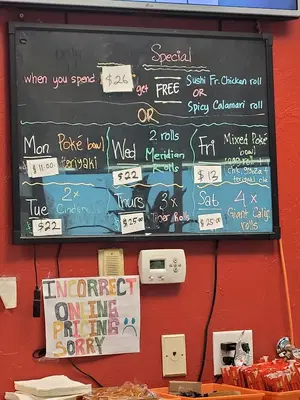 Special
when you spend $26 get FREE Sushi Fr. Chicken roll
OR
Spicy Calamari roll
OR
Mon Poké bowl
teriyaki
$11.00
Wed 2 rolls
Meridian
Rolls
$22
Fri Mixed Poké
bowl
$12
Tue 2x
$22
Thurs 3x
Tiger Rolls
$25.00
Sat 4x
Giant Calif
Rolls
$25.00
INCORRECT
ONLINE
PRICING
SORRY